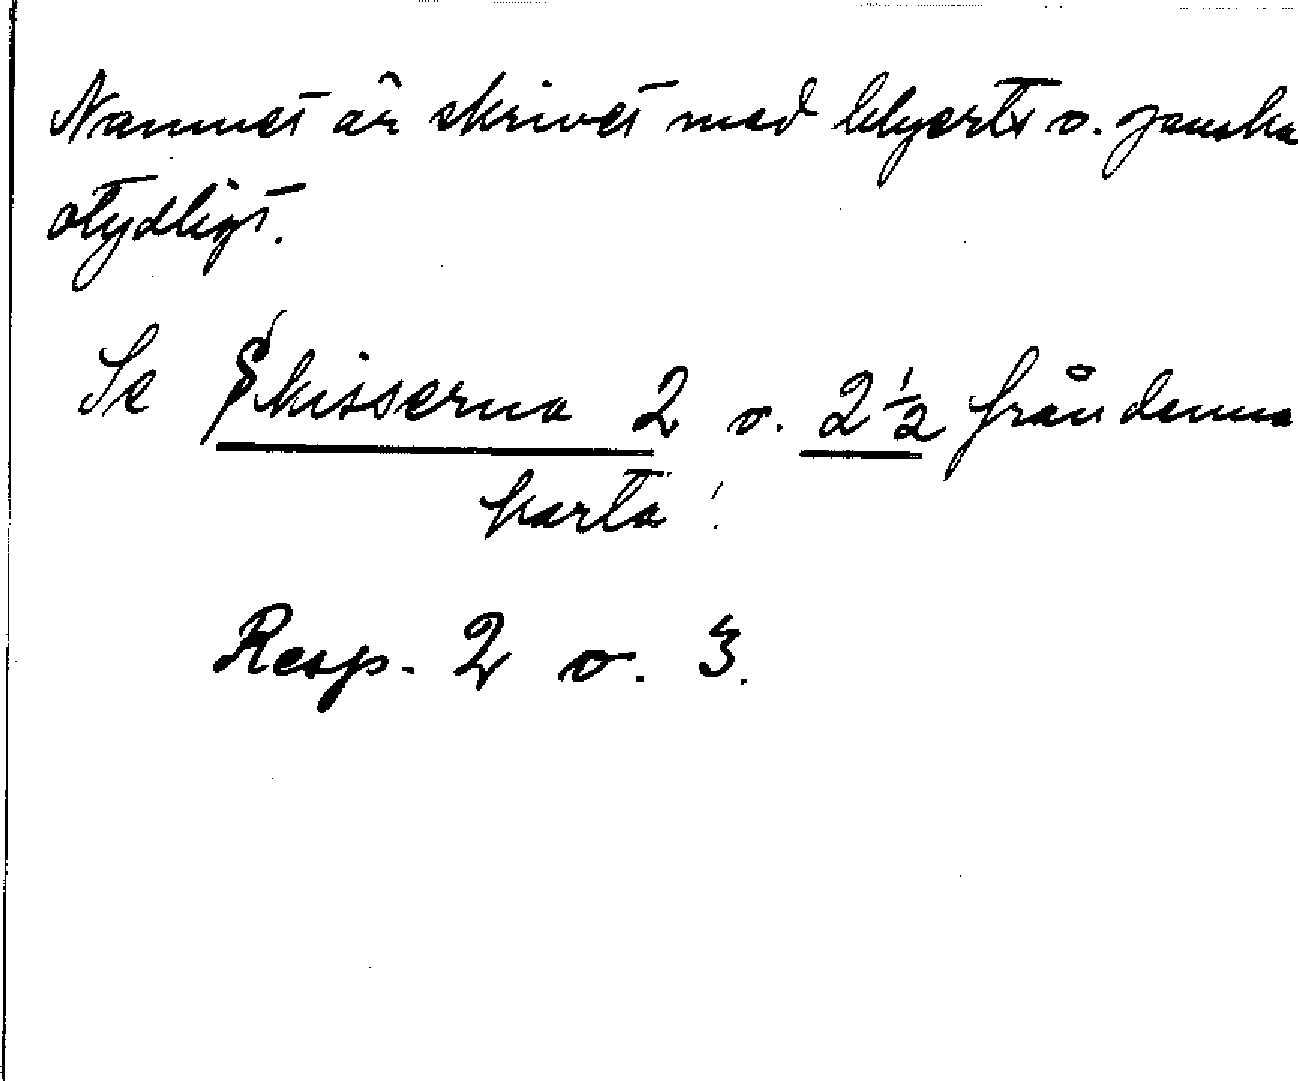 Namnet är skrivet med blyerts o. ganska
otydligt.
Se Skisserna 2 o. 2½ från denna
karta!
Resp. 2 o. 3.